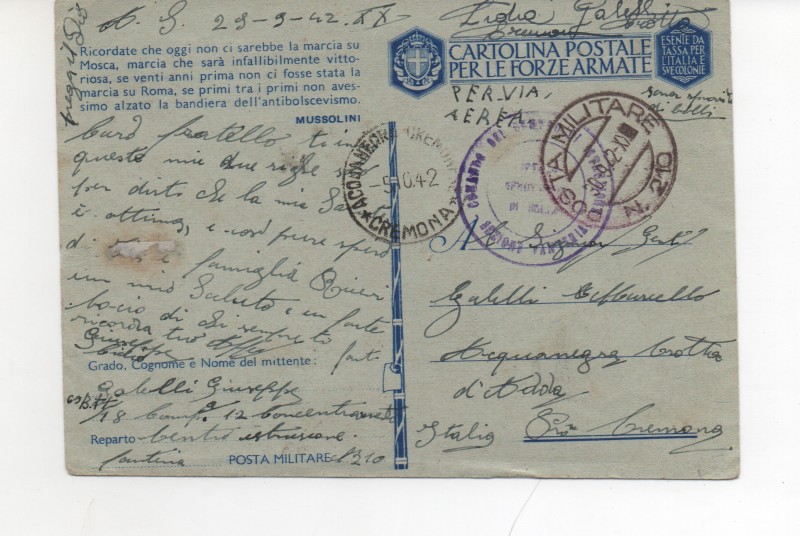 A. S. 29-9-42 XX
Ricordate che oggi non ci sarebbe la marcia su
Mosca, marcia che sarà infallibilmente vitto-
riosa, se venti anni prima non ci fosse stata la
marcia su Roma, se primi tra i primi non aves-
simo alzato la bandiera dell'antibolscevismo.
MUSSOLINI
Caro fratello ti invio
queste mie due righe
per dirti che la mia Salute
è ottima, e così pure spero
di te e famiglia Ricevi
un mio Saluto e un forte
bacio di chi sempre ti
ricorda tuo
Giuseppe
Grado, Cognome e Nome del mittente:
Galelli Giuseppe
18 Comp. 12 Concentramento
Reparto Centro istruzione
fanteria POSTA MILITARE N 210
Galelli
CARTOLINA POSTALE
PER LE FORZE ARMATE
ESENTE DA
TASSA PER
L'ITALIA E
SVE COLONIE
PER VIA
AEREA
POSTA MILITARE
N. 210
ACQUANEGRA CREMONESE
-5.10.42
*CREMONA*
Al Signor
Galelli
Acquanegra Crotta
d'Adda
Italia Prov Cremona